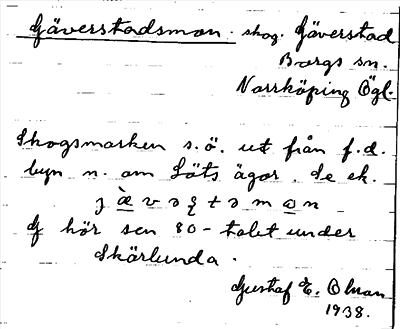 Gäverstadsmon. skog. Gäverstad
Borgs sn.
Norrköping Ögl.
Skogsmarken s.ö. ut från f.d.
byn n. om Göts ägor. De ek.
j æ̀ v ə ʂ t ə m ɔ n
G hör sen 80-talet under
Skärlunda.
Gustaf E. Olman
1938.